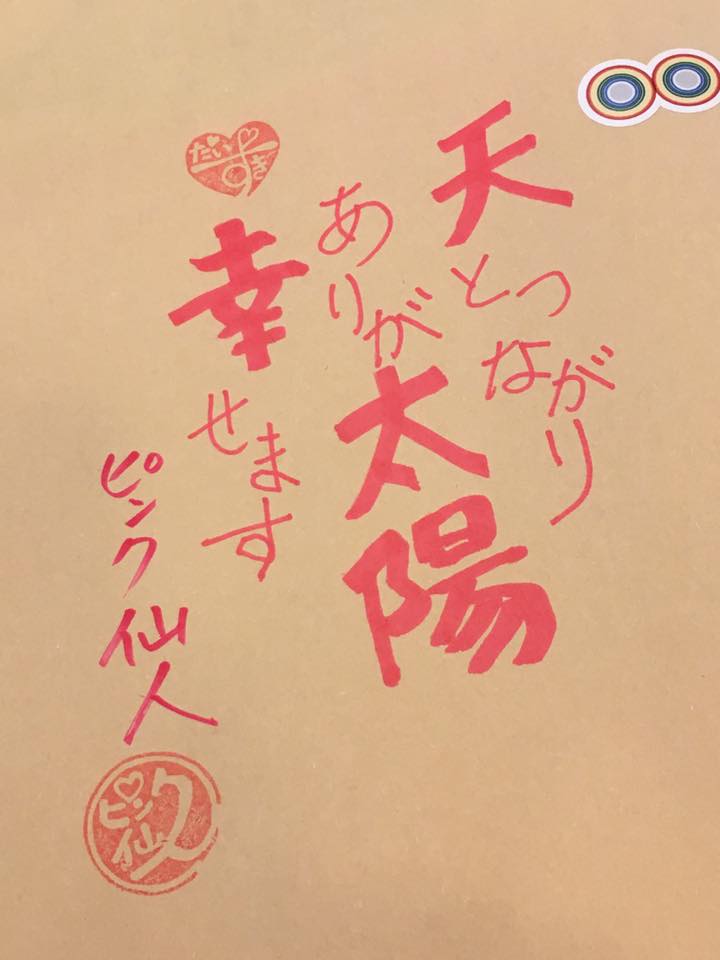 天とつながり
ありが太陽
幸せます
だいすき
ピンク仙人
ピンク仙人